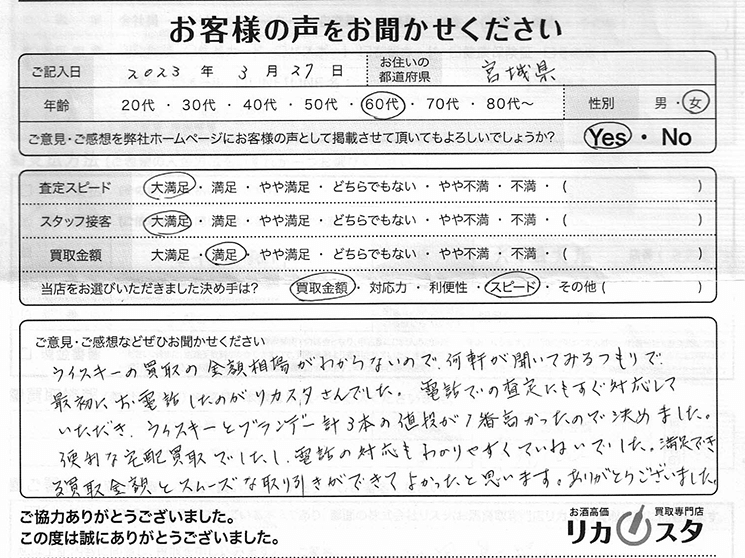 お客様の声をお聞かせください
ご記入日 2023 年 3 月 27 日 お住いの都道府県 宮城県
年齢 20代 ・ 30代 ・ 40代 ・ 50代 ・ 60代 ・ 70代 ・ 80代〜 性別 男 ・ 女
ご意見・ご感想を弊社ホームページにお客様の声として掲載させて頂いてもよろしいでしょうか? Yes ・ No
査定スピード 大満足 ・ 満足 ・ やや満足 ・ どちらでもない ・ やや不満 ・ 不満 ・ ( )
スタッフ接客 大満足 ・ 満足 ・ やや満足 ・ どちらでもない ・ やや不満 ・ 不満 ・ ( )
買取金額 大満足 ・ 満足 ・ やや満足 ・ どちらでもない ・ やや不満 ・ 不満 ・ ( )
当店をお選びいただきました決め手は? 買取金額 ・ 対応力 ・ 利便性 ・ スピード ・ その他 ( )
ご意見・ご感想などぜひお聞かせください
ウイスキーの買取の金額相場がわからないので、何軒か聞いてみるつもりで
最初にお電話したのがリカスタさんでした。電話での査定にもすぐ対応して
いただき、ウィスキーとブランデー計3本の値段が1番高かったので決めました。
便利な宅配買取でしたし、電話の対応もわりやすくていねいでした。満足でき
る買取金額とスムーズな取り引きができてよかったと思います。ありがとうございました。
ご協力ありがとうございました。
この度は誠にありがとうございました。
お酒高価 買取専門店
リカスタ